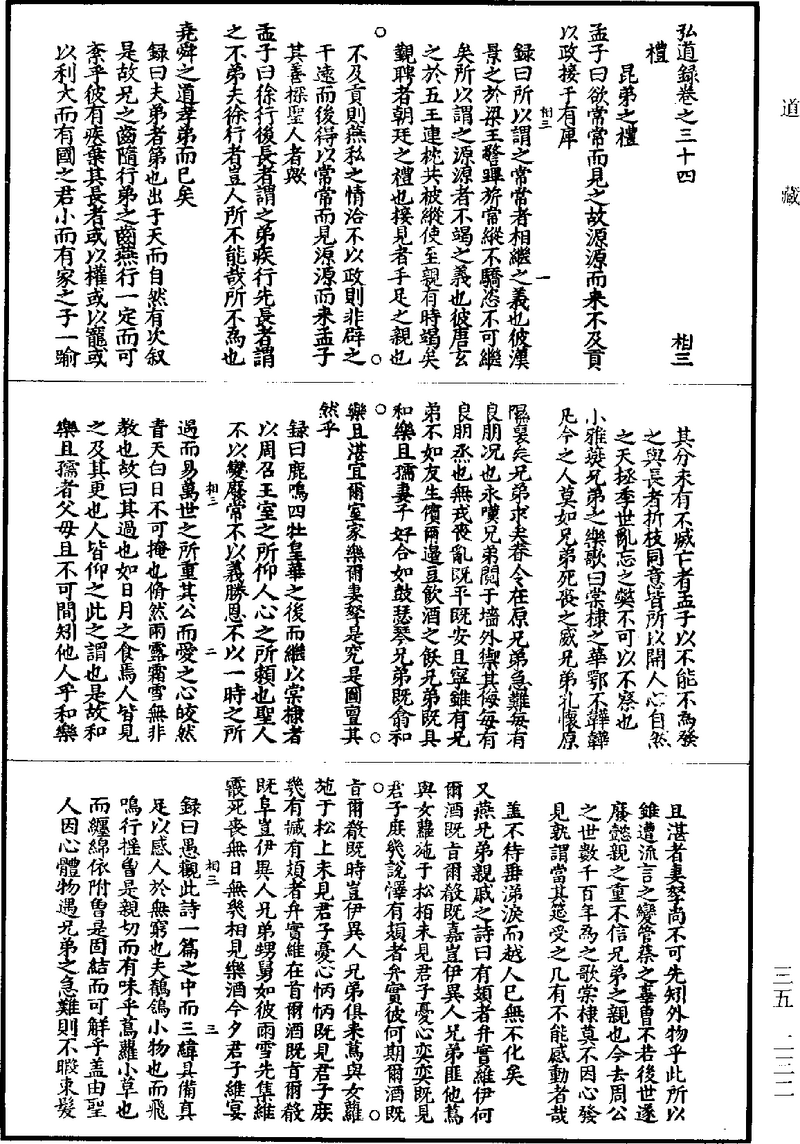 道藏
弘道録卷之三十四　相三
禮
昆弟之禮
孟子曰欲常常而見之故源源而来不及貢
以政接于有庳
録曰所以謂之常常者相繼之義也彼漢
景之於梁王警蹕旂常縱不驕恣不可繼
矣所以謂之源源者不竭之義也彼唐玄
之於五王連枕共被縱使至親有時竭矣
觀聘者朝廷之禮也接見者手足之親也
不及貢則燕私之情洽不以政則非辟之
干遠而後得以常常而見源源而来孟子
其善探聖人者歟
孟子曰徐行後長者謂之弟疾行先長者謂
之不弟夫徐行者豈人所不能哉所不為也
堯舜之道孝弟而已矣
録曰夫弟者第也出于天而自然有次叙
是故兄之齒隨行弟之齒燕行一定而可
紊乎彼有疾棄其長者或以權或以寵或
以利大而有國之君小而有家之子一踰
其分未有不喊亡者孟子以不能不為發
之與長者折枝同意皆所以開人心自然
之天拯季世亂忘之獘不可以不察也
小雅燕兄弟之樂歌曰棠棣之華鄂不韡韡
凡今之人莫如兄弟死喪之威兄弟孔懷原
隰裒矣兄弟求矣脊令在原兄弟急難每有
良朋况也永嘆兄弟鬩于墻外禦其侮每有
良朋烝也無戎喪亂既平既安且寧雖有兄
弟不如友生儐爾邉豆飲酒之飫兄弟既具
和樂且孺妻子好合如鼓瑟琴兄弟既翕和
樂且湛宜爾室家樂爾妻孥是究是圖亶其
然乎
録曰鹿鳴四牡皇華之後而繼以棠棣者
以周召王室之所仰人心之所頼也聖人
不以變廢常不以義勝恩不以一時之所
過而易萬世之所重其公而愛之心皎然
青天白日不可掩也脩然雨露霜雪無非
教也故曰其過也如日月之食焉人皆見
之及其更也人皆仰之此之謂也是故和
樂且孺者父母且不可間矧他人乎和樂
且湛者妻孥尚不可先矧外物乎此所以
雖遭流言之變管蔡之辜曽不若後世遂
廢懿親之重不信兄弟之親也今去周公
之世數千百年為之歌棠棣莫不因心發
見孰謂當其筵受之几有不能感動者哉
盖不待垂涕淚而越人已無不化矣
又燕兄弟親戚之詩曰有頍者弁實維伊何
爾酒既旨爾殽既嘉豈伊異人兄弟匪他蔦
與女蘿施于松栢未見君子憂心奕奕既見
君子庶幾說懌有頍者弁實維何期爾酒既
旨爾殽既時豈伊異人兄弟俱来蔦與女蘿
施于松上未見君子憂心怲怲既見君子庶
幾有臧有頍者弁實維在首爾酒既旨爾殽
既阜豈伊異人兄弟甥舅如彼雨雪先集維
霰死喪無日無幾相見樂酒今夕君子維宴
録曰愚觀此詩一篇之中而三緯具備真
足以感人於無窮也夫鶺鴒小物也而飛
鳴行摇曽是親切而有味乎蔦蘿小草也
而纒綿依附曽是固結而可解乎盖由聖
人因心體物遇兄弟之急難則不暇束髮
相三　一
相三　二
相三　三
三五　二三二